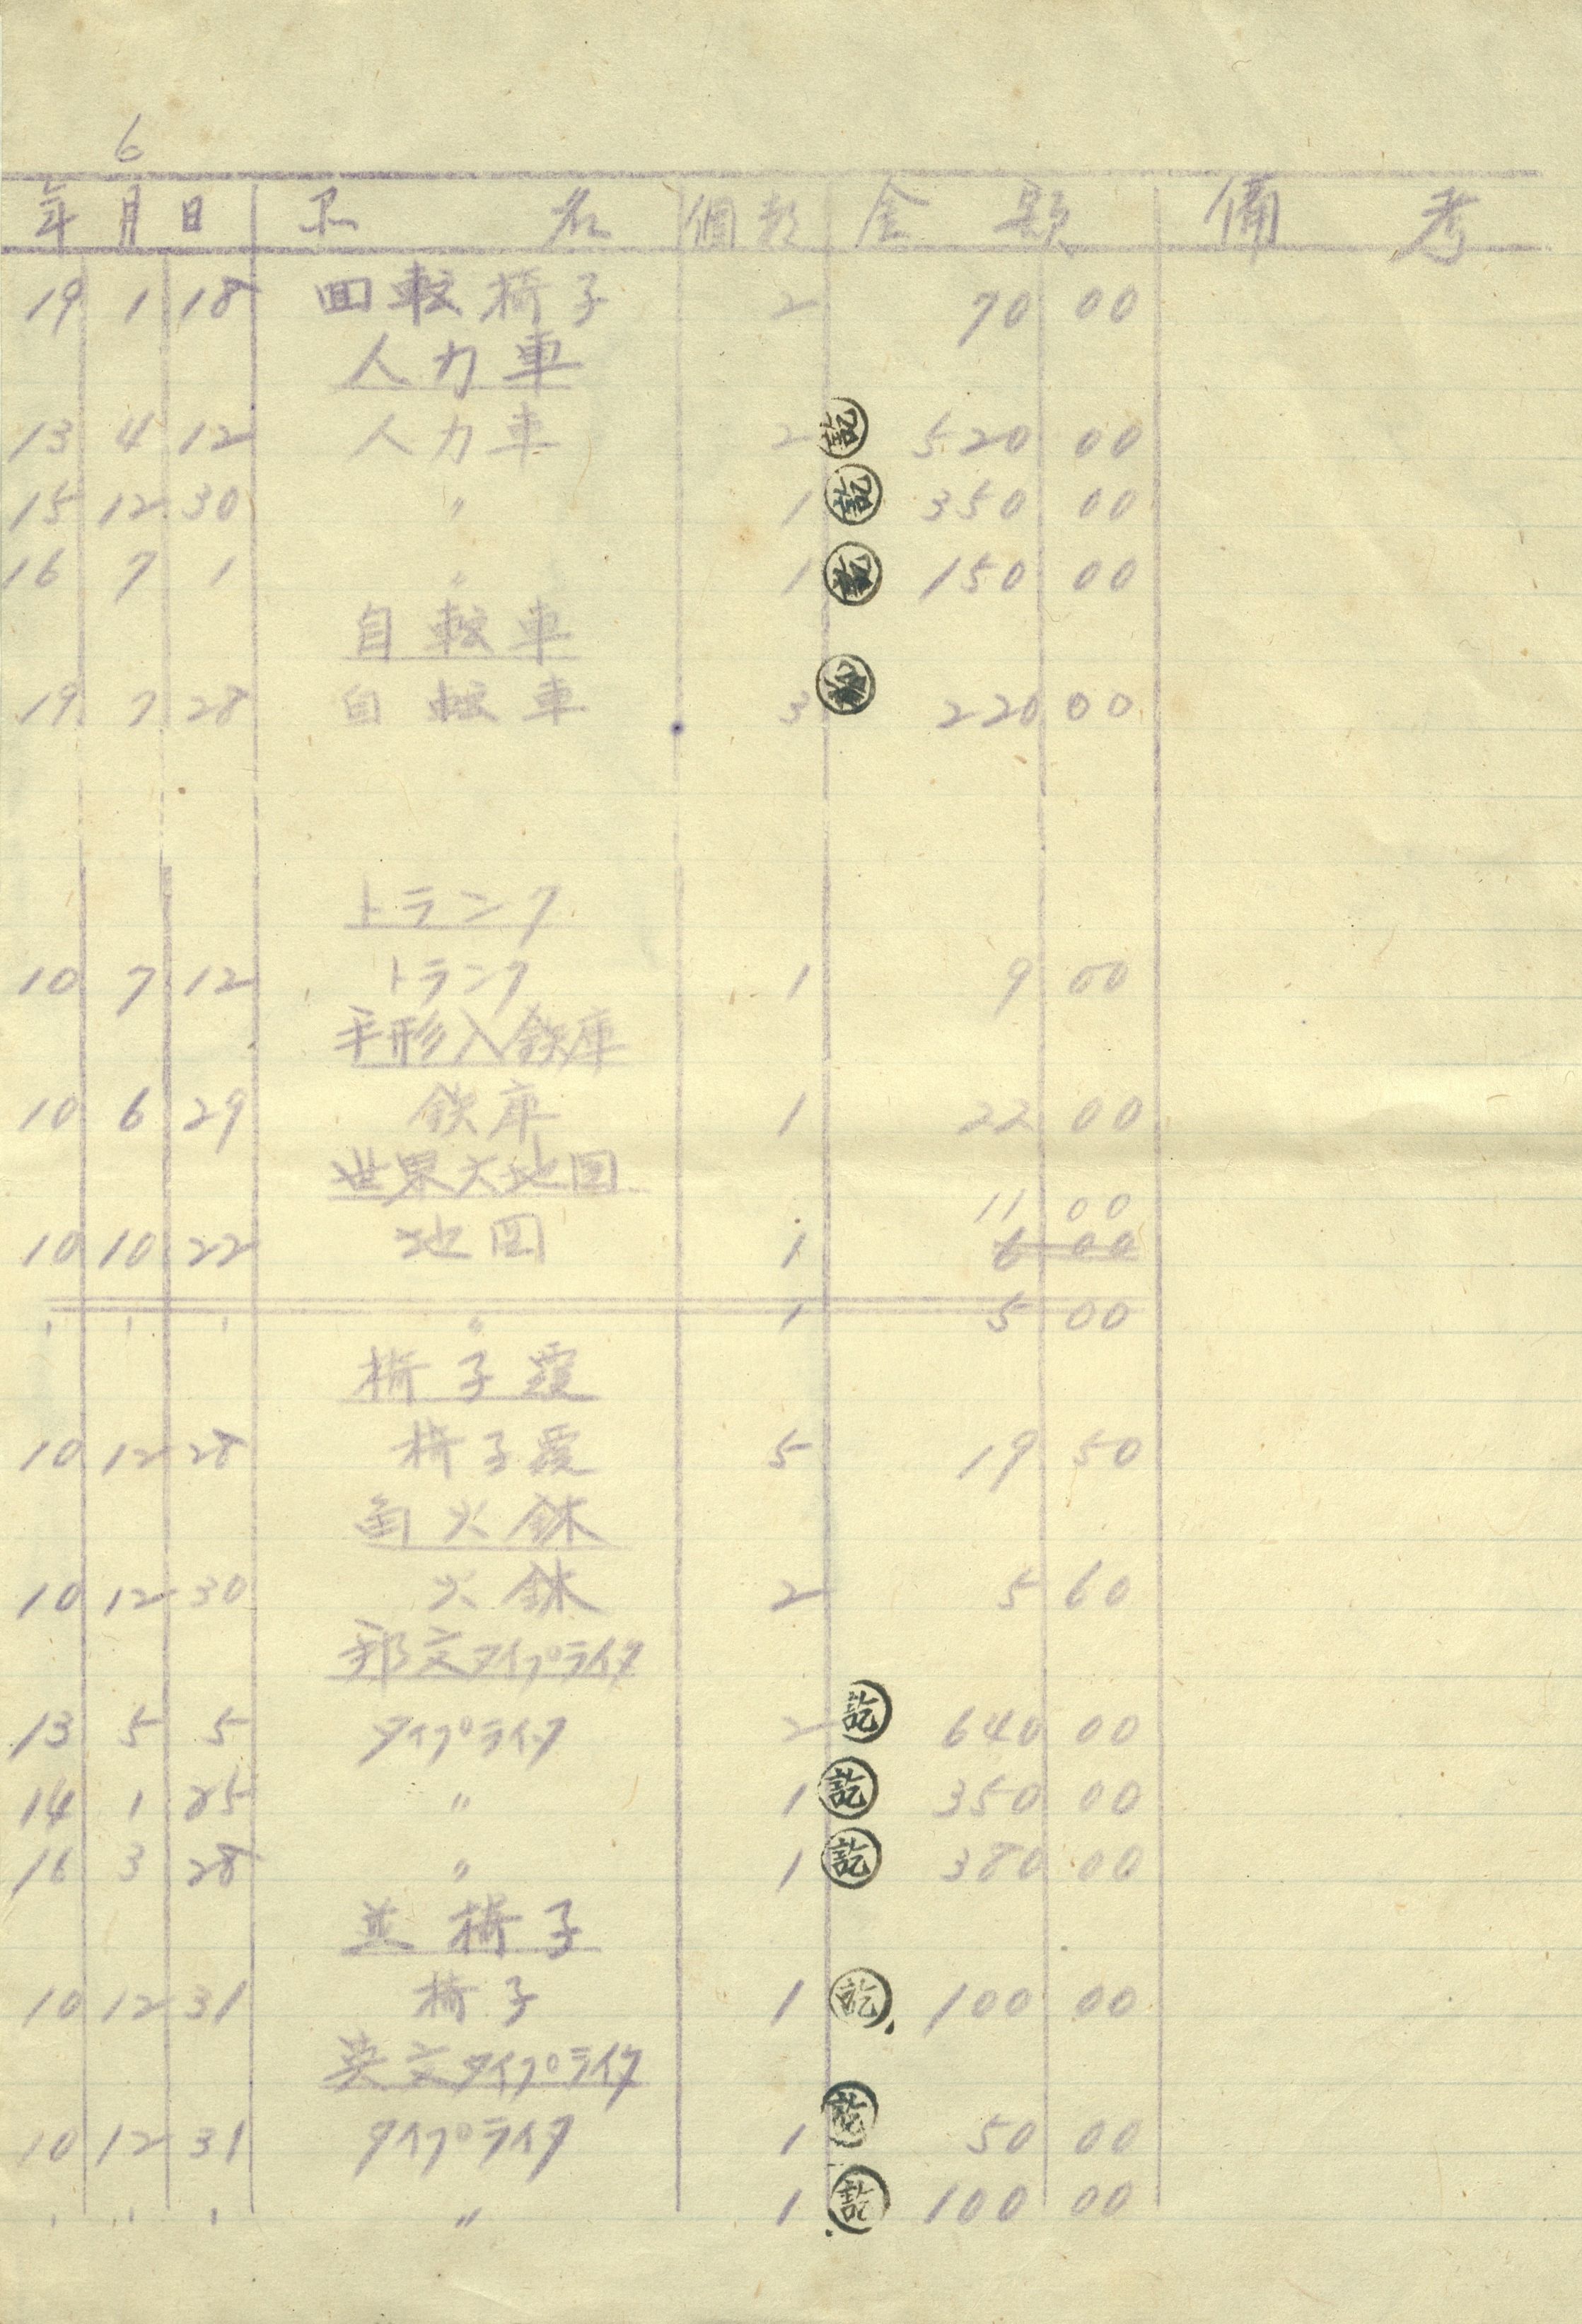 6
年 月 日 品 名 個数 金 額 備 考
19 1 18 回転椅子 2 70 00
人力車
13 4 12 人力車 2 訖 520 00
15 12 30 〃 1 訖 350 00
16 7 1 〃 1 訖 150 00
自転車
19 7 28 自転車 3 訖 220 00
トランク
10 7 12 トランク 1 9 00
手形入鉄庫
10 6 29 鉄庫 1 22 00
世界大地図
11 00
10 10 22 地図 1 6 00
〃 〃 〃 〃 1 5 00
椅子覆
10 12 28 椅子覆 5 19 50
角火鉢
10 12 30 火鉢 2 5 60
邦文タイプライタ
13 5 5 タイプライタ 2 訖 640 00
14 1 25 〃 1 訖 350 00
16 3 28 〃 1 訖 380 00
並椅子
10 12 31 椅子 1 訖 100 00
英文タイプライタ
10 12 31 タイプライタ 1 訖 50 00
〃 〃 〃 〃 1 訖 100 00